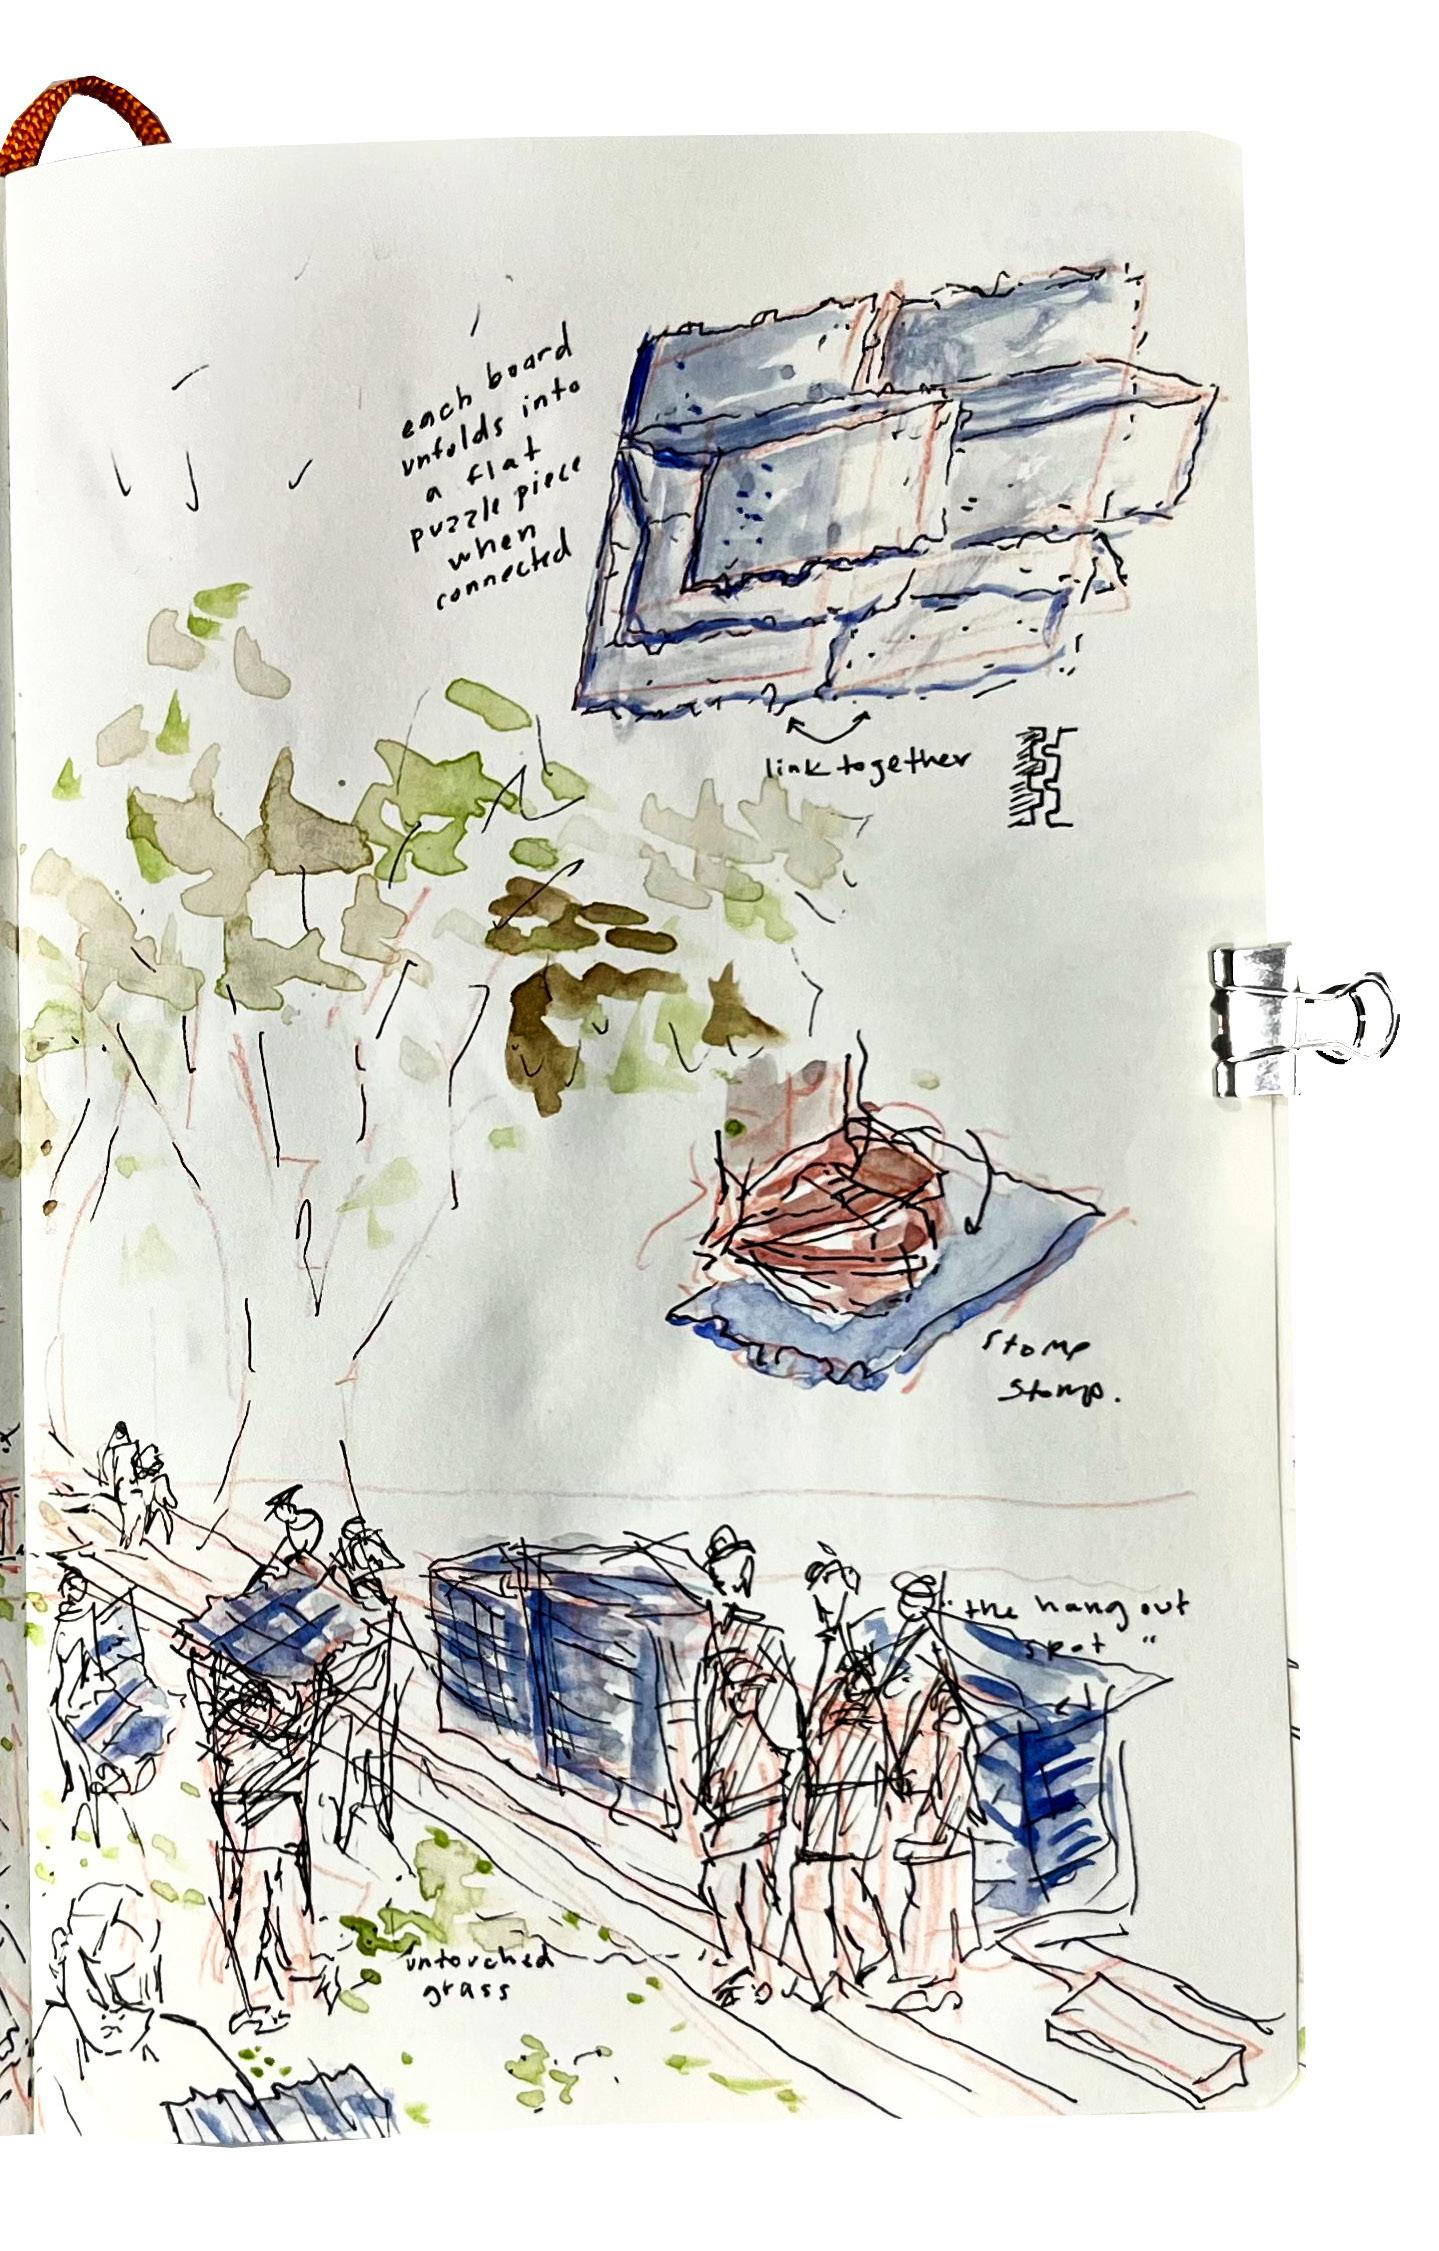 each board
unfolds into
a flat
puzzle piece
when
connected
link together
stomp
stomp.
the hang out
spot "
untouched
grass